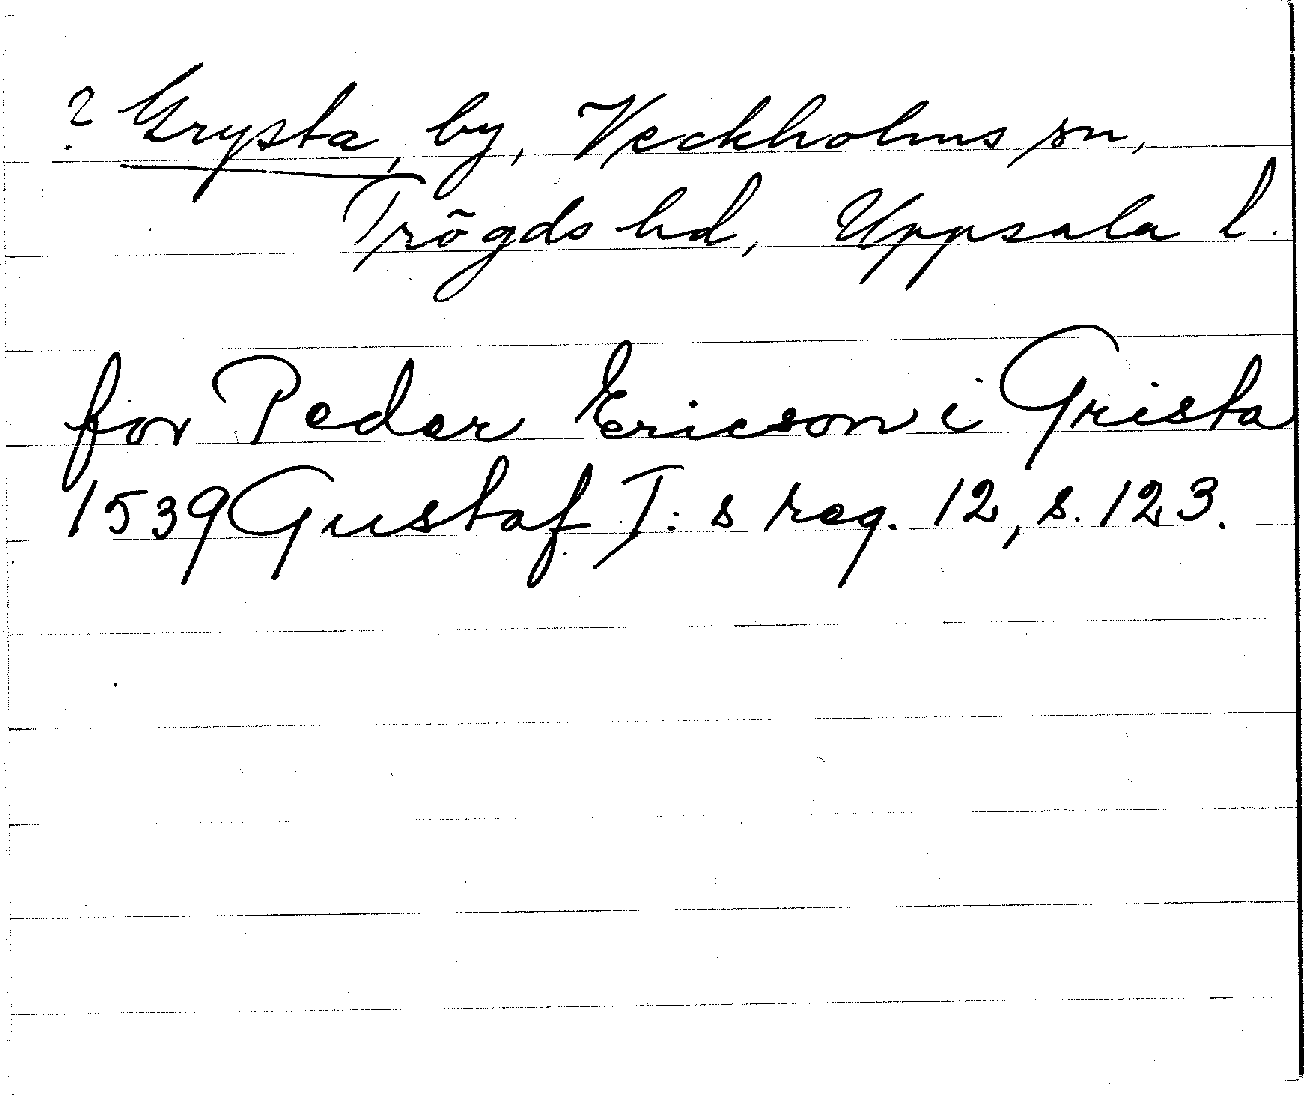 ? Grysta, by, Veckholms sn,
Trögds hd, Uppsala l.
for Peder Ericson i Grista
1539 Gustaf I:s reg. 12, s. 123.